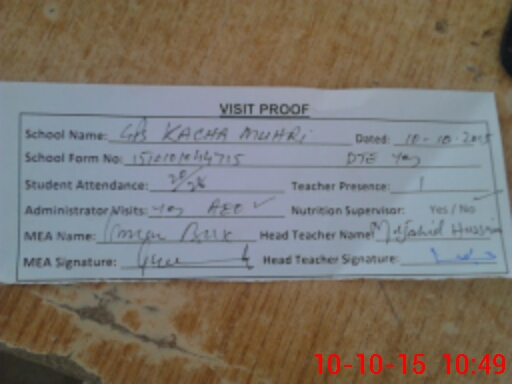 VISIT PROOF
School Name: GPS KACHA MUHARI Dated: 10-10-2015
School Form No: DTE yes
Student Attendance: 20/26 Teacher Presence: 1
Administrator Visits: yes AEO ✓ Nutrition Supervisor: Yes / No
MEA Name: Head Teacher Name: Mujahid Hussain
MEA Signature: Head Teacher Signature:
10-10-15 10:49